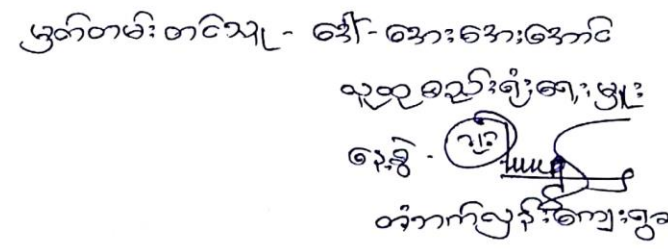 မှတ်တမ်းတင်သူ - ဒေါ်အေးအေးအောင်
လူထုစည်းရုံးရေးမှူး
နေ့စွဲ -
တံဘက်လှန်းကျေးရွာ